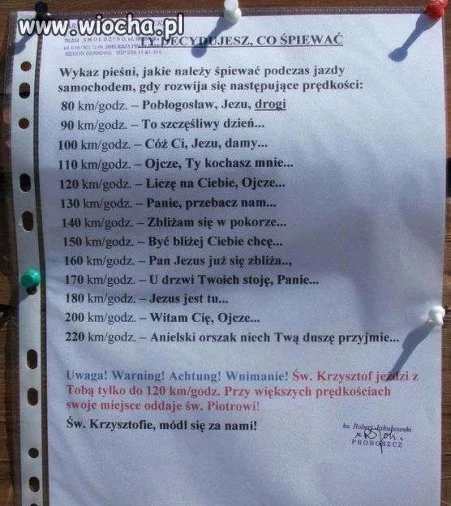 www.wiocha.pl
TY DECYDUJESZ, CO ŚPIEWAĆ
Wykaz pieśni, jakie należy śpiewać podczas jazdy
samochodem, gdy rozwija się następujące prędkości:
80 km/godz. – Pobłogosław, Jezu, drogi
90 km/godz. – To szczęśliwy dzień...
100 km/godz. – Cóż Ci, Jezu, damy...
110 km/godz. – Ojcze, Ty kochasz mnie...
120 km/godz. – Liczę na Ciebie, Ojcze...
130 km/godz. – Panie, przebacz nam...
140 km/godz. – Zbliżam się w pokorze...
150 km/godz. – Być bliżej Ciebie chcę...
160 km/godz. – Pan Jezus już się zbliża..,
170 km/godz. – U drzwi Twoich stoję, Panie...
180 km/godz. – Jezus jest tu...
200 km/godz. – Witam Cię, Ojcze...
220 km/godz. – Anielski orszak niech Twą duszę przyjmie...
Uwaga! Warning! Achtung! Wnimanie! Św. Krzysztof jeździ z
Tobą tylko do 120 km/godz. Przy większych prędkościach
swoje miejsce oddaje św. Piotrowi!
Św. Krzysztofie, módl się za nami!
ks. Robert
PROBOSZCZ